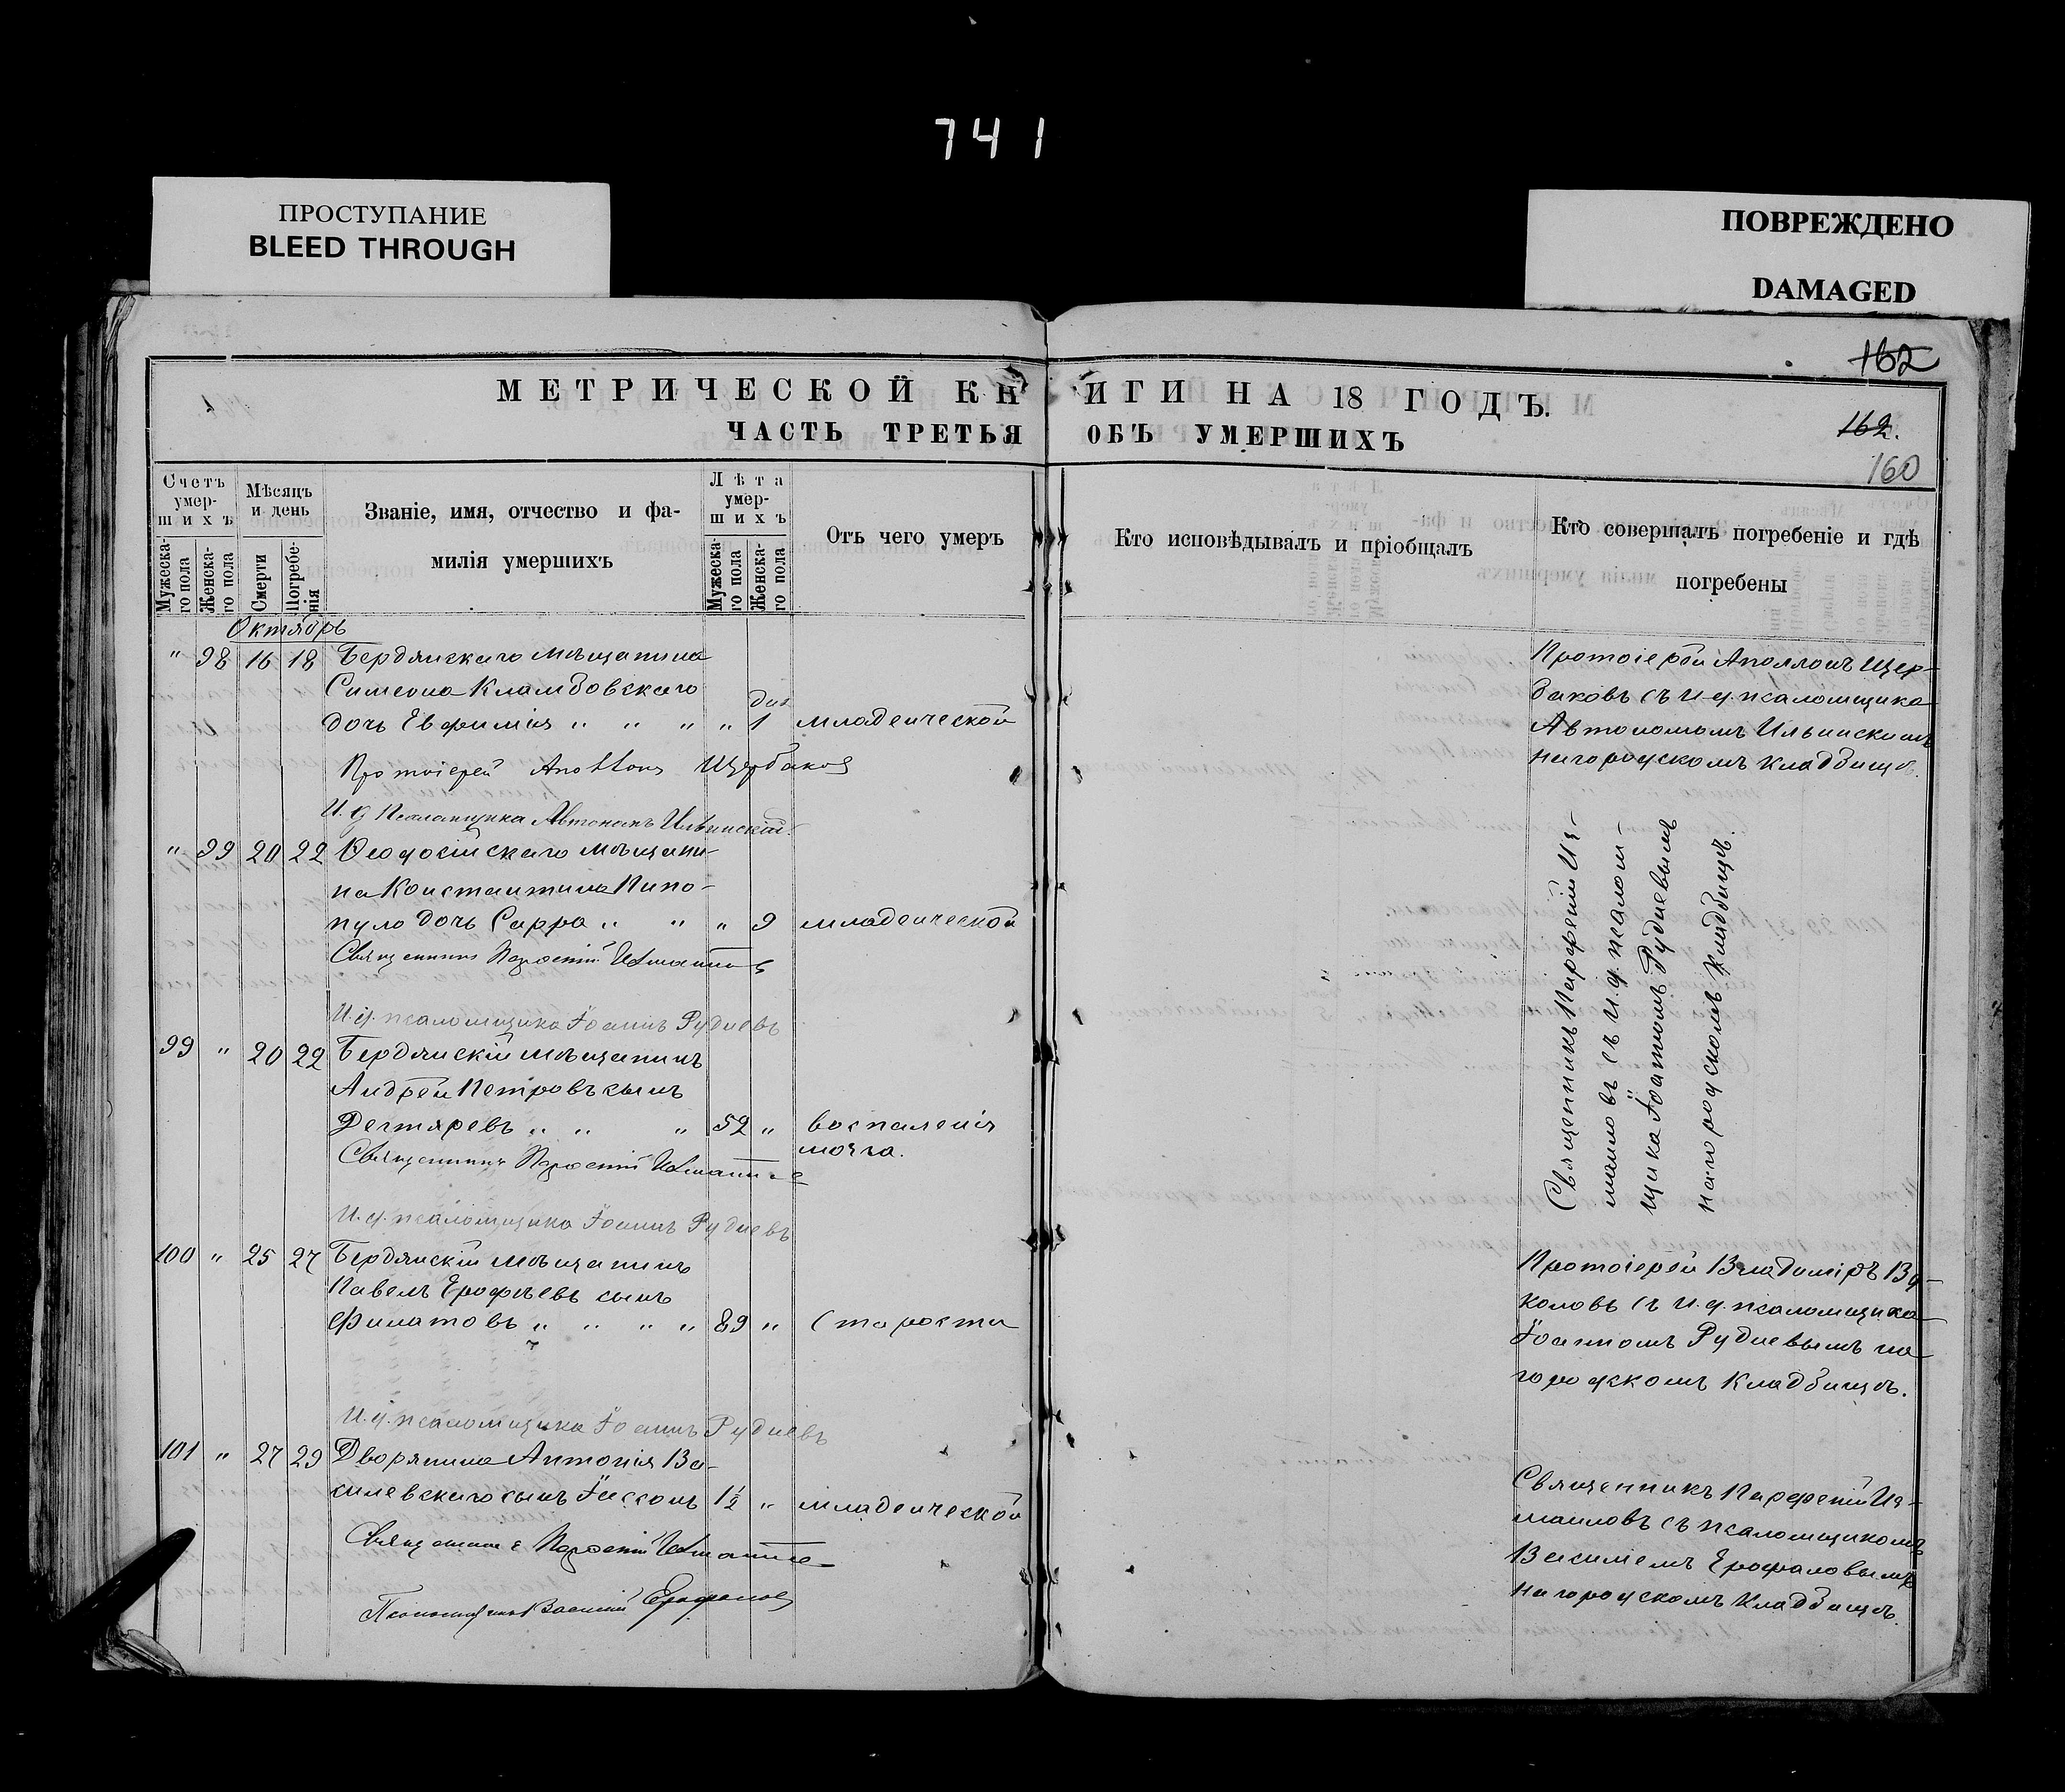 741
ПРОСТУПАНИЕ
BLEED THROUGH
ПОВРЕЖДЕНО
DAMAGED
162
162.
160
МЕТРИЧЕСКОЙ КНИГИ НА 18 ГОДЪ.
ЧАСТЬ ТРЕТЬЯ ОБЪ УМЕРШИХЪ
Счетъ умершихъ
Мужескаго пола
Женскаго пола
Мѣсяцъ и день
Смерти
Погребенія
Званіе, имя, отчество и фамилія умершихъ
Лѣта умершихъ
Мужескаго пола
Женскаго пола
Отъ чего умеръ
Кто исповѣдывалъ и пріобщалъ
Кто совершалъ погребеніе и гдѣ погребены
Октябрь
" 98 16 18 Бердянскаго мѣщанина
Симеона
дочь Евфимія " " " " 1 младенческой
Протоіерей Аполлонъ Щербаковъ
И. д. Псаломщика Автономъ Ильинскій
Протоіерей Аполлонъ Щер-
баковъ съ и. д. псаломщика
Автономомъ Ильинскимъ
на городскомъ кладбищѣ.
" 99 20 22 Ѳеодосійскаго мѣщани-
на Константина Кипо-
пуло дочь Сарра " " " 9 младенческой
Священникъ Парѳеній Измаиловъ
И. д. псаломщика Іоаннъ Рудневъ
99 " 20 22 Бердянскій мѣщанинъ
Андрей Петровъ сынъ
Дегтяревъ " " " 52 " воспаленія
мозга.
Священникъ Парѳеній Измаиловъ
И. д. псаломщика Іоаннъ Рудневъ
Священникъ Парѳеній Из-
маиловъ съ и. д. псалом-
щика Іоанномъ Рудневымъ
на городскомъ кладбищѣ.
100 " 25 27 Бердянскій мѣщанинъ
Павелъ Ерофѣевъ сынъ
Филатовъ " " " " 89 " Старости
И. д. псаломщика Іоаннъ Рудневъ
Протоіерей Владиміръ Ву-
коловъ съ и. д. псаломщика
Іоанномъ Рудневымъ на
городскомъ кладбищѣ.
101 " 27 29 Дворянина Антонія Ва-
силевскаго сынъ 1½ " младенческой
Священникъ Парѳеній Измаиловъ
Псаломщикъ Василій Ерофаловъ
Священникъ Парѳеній Из-
маиловъ съ псаломщикомъ
Василіемъ Ерофаловымъ
на городскомъ кладбищѣ.